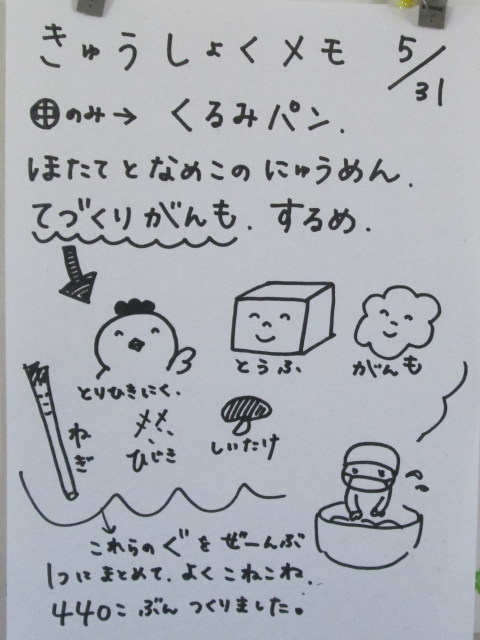 きゅうしょくメモ 5/31
㊥のみ→ くるみパン.
ほたてとなめこのにゅうめん.
てづくりがんも. するめ.
とりひきにく.
とうふ
がんも
ねぎ
ひじき
しいたけ
これらのぐをぜーんぶ
1つにまとめて.よくこねこね.
440こぶんつくりました。